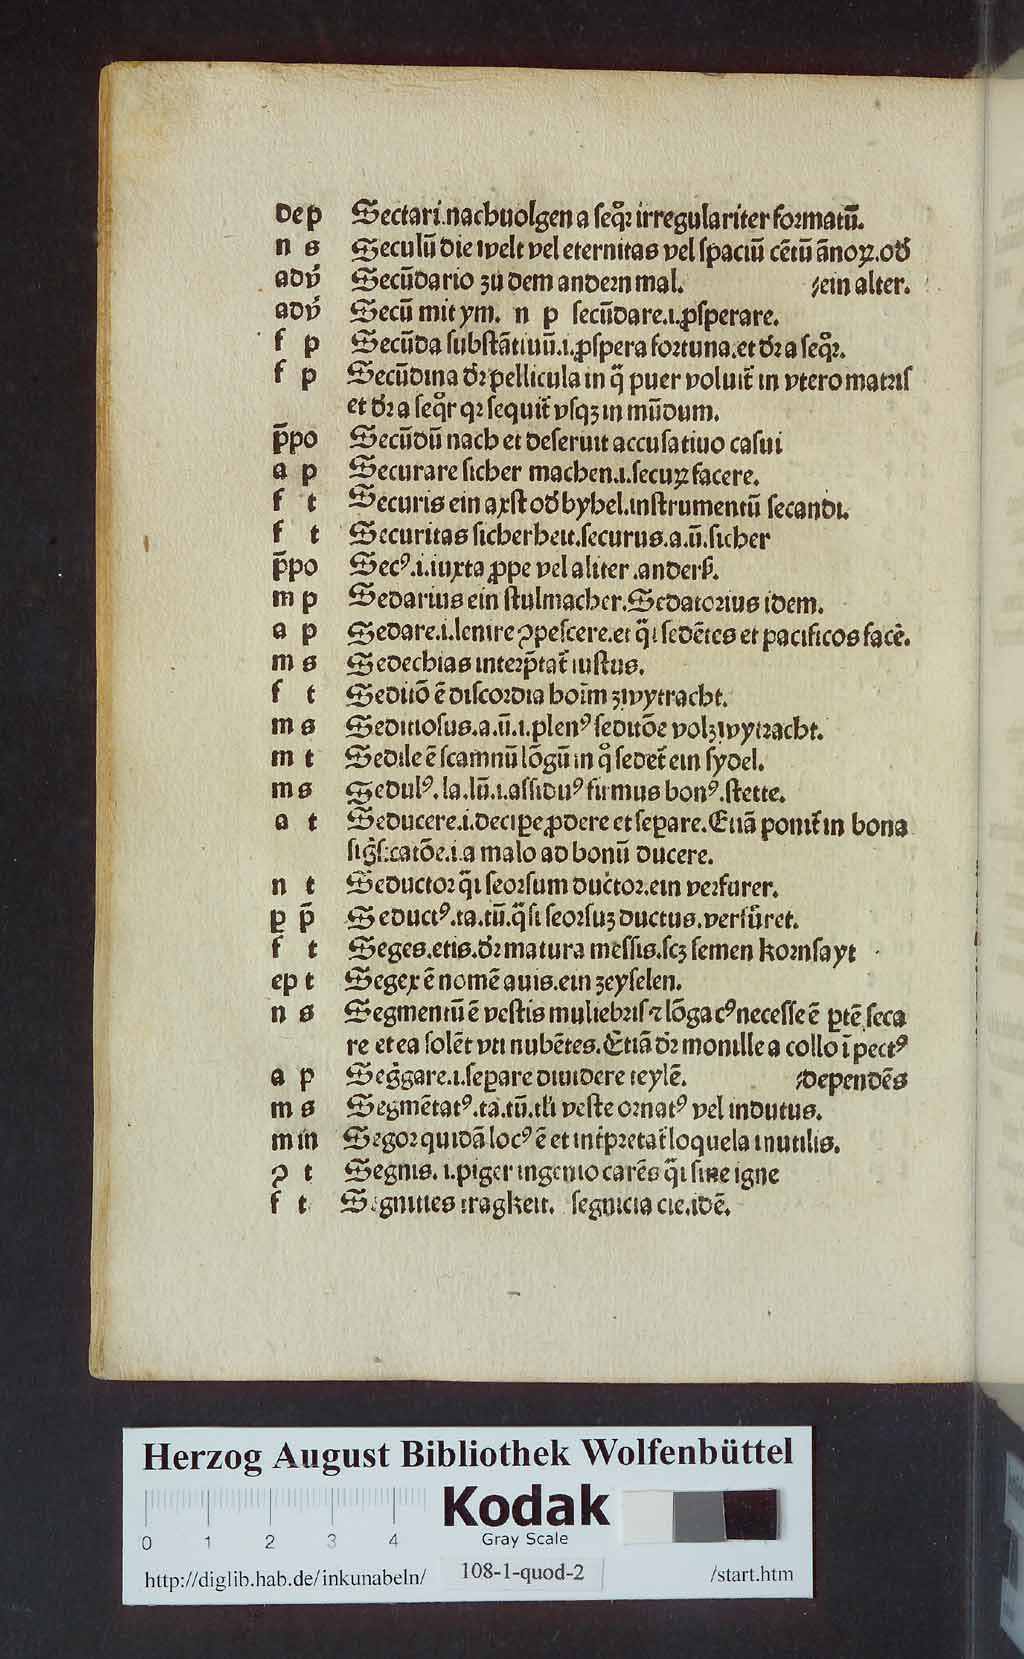 dep Sectari.nachuolgen a seq̊ꝛ irregulariter formatū.
n s Seculū die welt vel eternitas vel spaciū cētū ānoꝝ.od̓
adv̓ Secūdario zu dem andern mal. /ein alter.
adv̓ Secū mit ym. n p secūdare.i.ꝓsperare.
f p Secūda substātiuū.i.ꝓspera fortuna.et dꝛ̄ a seq̊ꝛ.
f p Secūdina dꝛ̄ pellicula in q̄ puer voluit̄ in vtero matris
et dꝛ̄ a seq̊r qꝛ sequit̄ vsqꝫ in mūdum.
p̄po Secūdū nach et deseruit accusatiuo casui
a p Securare sicher machen.i.secuꝝ facere.
f t Securis ein axst od̓ byhel.instrumentū secandi.
f t Securitas sicherheit.securus.a.ū.sicher
p̄po Secꝰ.i.iuxta ꝓpe vel aliter.anders̓.
m p Sedarius ein stulmacher.Sedatorius idem.
a p Sedare.i.lenire ↄpescere.et q̄i sedētes et pacificos facē.
m s Sedechias interp̄tat̄ iustus.
f t Seditiō ē discordia hoīm zwytracht.
m s Seditiosus.a.ū.i.plenꝰ seditōe volzwytracht.
m t Sedile ē scamnū lōgū in q̊ sedet̄ ein sydel.
m s Sedulꝰ.la.lū.i.assiduꝰ firmus bonꝰ.stette.
a t Seducere.i.decipe ꝓdere et seꝑare.Etiā ponit̄ in bona
sig̓ficatōe.i.a malo ad bonū ducere.
n t Seductor q̄i seorsum ductor.ein verfurer.
ꝑ p̄ Seductꝰ.ta.tū.q̄si seorsuꝫ ductus.verfu̓ret.
f t Seges.etis.dꝛ̄ matura messis.scꝫ semen kornsayt
ep t Segex ē nomē auis.ein zeyselen.
n s Segmentū ē vestis muliebris ⁊ lōga cꝰ necesse ē ꝑtē seca
re et ea solēt vti nubētes.Etiā dꝛ̄ monille a collo ī pectꝰ
a p Seg̓gare.i.seꝑare diuidere teylē. /dependēs
m s Segmētatꝰ.ta.tū.tli veste ornatꝰ vel indutus.
m in Segor quidā locꝰ ē et int̓pretat̄ loquela inutilis.
ↄ t Segnis.i.piger ingenio carēs q̄i sine igne
f t Segnities tragkeit. segnicia cie.idē.
Herzog August Bibliothek Wolfenbüttel
Kodak
Gray Scale
0 1 2 3 4
http://diglib.hab.de/inkunabeln/ 108-1-quod-2 /start.htm